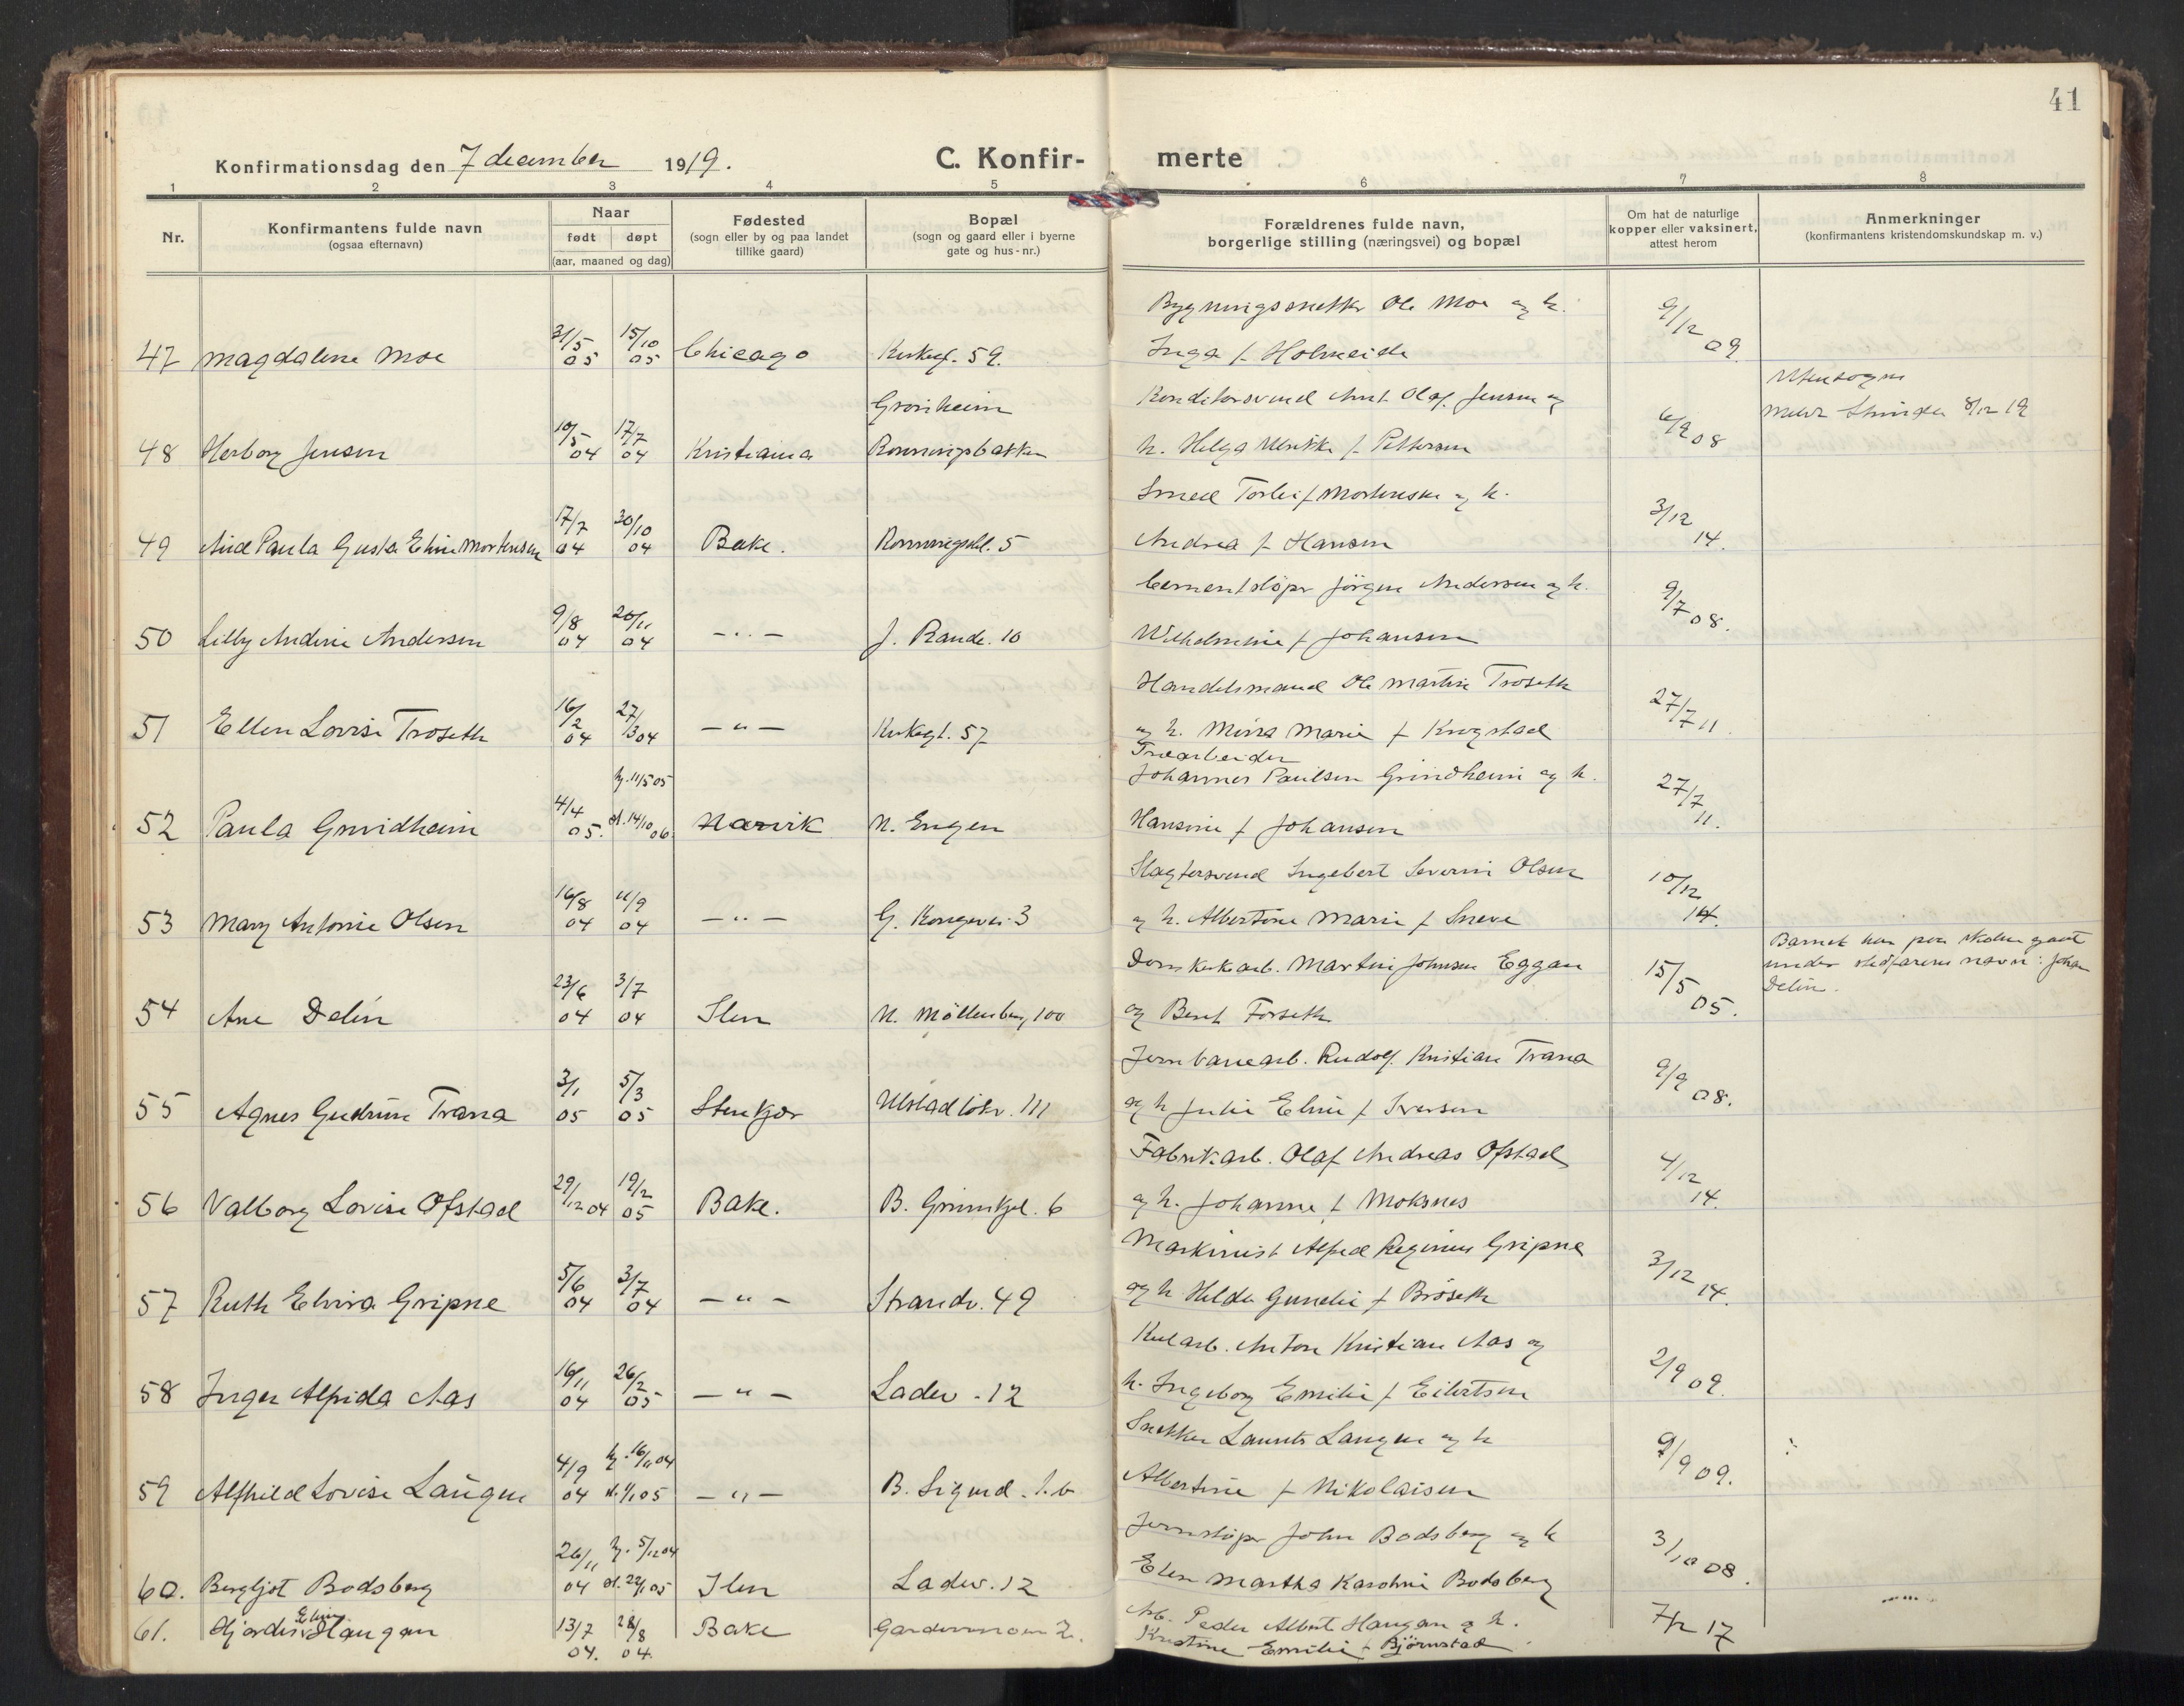 41
Konfirmationsdag den 7 december 1919.
C. Konfir-
merte
1 2 3 4 5 6 7 8
Nr.
Konfirmantens fulde navn
(ogsaa efternavn)
Naar
født døpt
(aar, maaned og dag)
Fødested
(sogn eller by og paa landet
tillike gaard)
Bopæl
(sogn og gaard eller i byerne
gate og hus-nr.)
Forældrenes fulde navn,
borgerlige stilling (næringsvei) og bopæl
Om hat de naturlige
kopper eller vaksinert,
attest herom
Anmerkninger
(konfirmantens kristendomskundskap m. v.)
Bygningssnekker Ole Moe og h.
47 Magdalene Moe 31/5 05 15/10 05 Chicago Kirkegt. 59. Inga f Holmeide 9/12 09.
Utensogns
Konditorsvend Arnt Olaf Jensen og
Meldt Strinda 8/12 19
48 Herborg Jensen 10/5 04 17/7 04 Kristiania Rönningsbakken h. Helga f Pettersen 6/9 08
Smed Torleif Mortensen og h.
49 Aud Paula Gusta Eline Mortensen 17/7 04 30/10 04 Bake. Rönningsbk. 5 Andrea f Hansen 3/12 14.
Cementstöper Jörgen Andersen og h.
50 Lilly Andrine Andersen 9/8 04 20/11 04 — " — J. Rande. 10 Wilhelmine f Johansen 9/7 08.
Handelsmand Ole Martin Tröseth
51 Ellen Lovise Tröseth 16/2 04 27/3 04 — " — Kirkegt. 57 og h. Mina Marie f Krogstad 27/7 11
Træarbeider
Johannes Paulsen Grindheim og h.
52 Paula Grindheim 4/4 05. hj. 11/5 05 st. 14/10 06 Narvik N. Engen Hansine f Johansen 27/7 11.
Slagtersvend Ingebert Severin Olsen
53 Mary Antonie Olsen 16/8 04 11/9 04 — " — G. Kongevei 3 og h. Albertine Marie f Sneve 10/12 14.
Barnet har paa skolen gaat
under stedfarens navn: Johan
Delin.
Domkirkearb. Martin Johnsen Eggan
54 Ane Delin 23/6 04 3/7 04 Ilen N. Möllenberg 100 og Berit Forseth 15/5 05.
Jernbanearb. Rudolf Kristian Trana
55 Agnes Gudrun Trana 3/1 05 5/3 05 Stenkjær Ulstadlökv. 111 og h Julie Eline f Iversen 9/9 08.
Fabrikarb. Olaf Andreas Ofstad
56 Valborg Lovise Ofstad 29/12 04 19/2 05 Bake. B. Grimkjel. 6 og h. Johanne f Moksnes 4/12 14.
Maskinist Alfred Reginius Gripne
57 Ruth Elvira Gripne 5/6 04 3/7 04 — " — Strandv. 49 og h Hilda Gunelie f Bröseth 3/12 14.
Kularb. Anton Kristian Aas og
58 Inger Alfrida Aas 16/11 04 26/2 05 — " — Ladev. 12 h. Ingeborg Emilie f Eilertsen 2/9 09.
Snekker Laurits Langen og h
59 Alfhild Lovise Langen 4/9 04 hj. 16/11 04 st. 1/1 05 — " — B. Sigurd. 1.b Albertine f Nikolaisen 9/9 09.
Jernstöper John Bodsberg og h
60. Bergljot Bodsberg 26/11 04 hj. 5/12 04 st. 22/1 05 Ilen Ladev. 12 Elen Martha Karoline Bodsberg 3/10 08.
61. Hjördis Elin Haugan 13/7 04. 28/8 04. Bake Gardemoen 2. Arb. Peder Albert Haugan og h.
Kristine Emilie f Björnstad